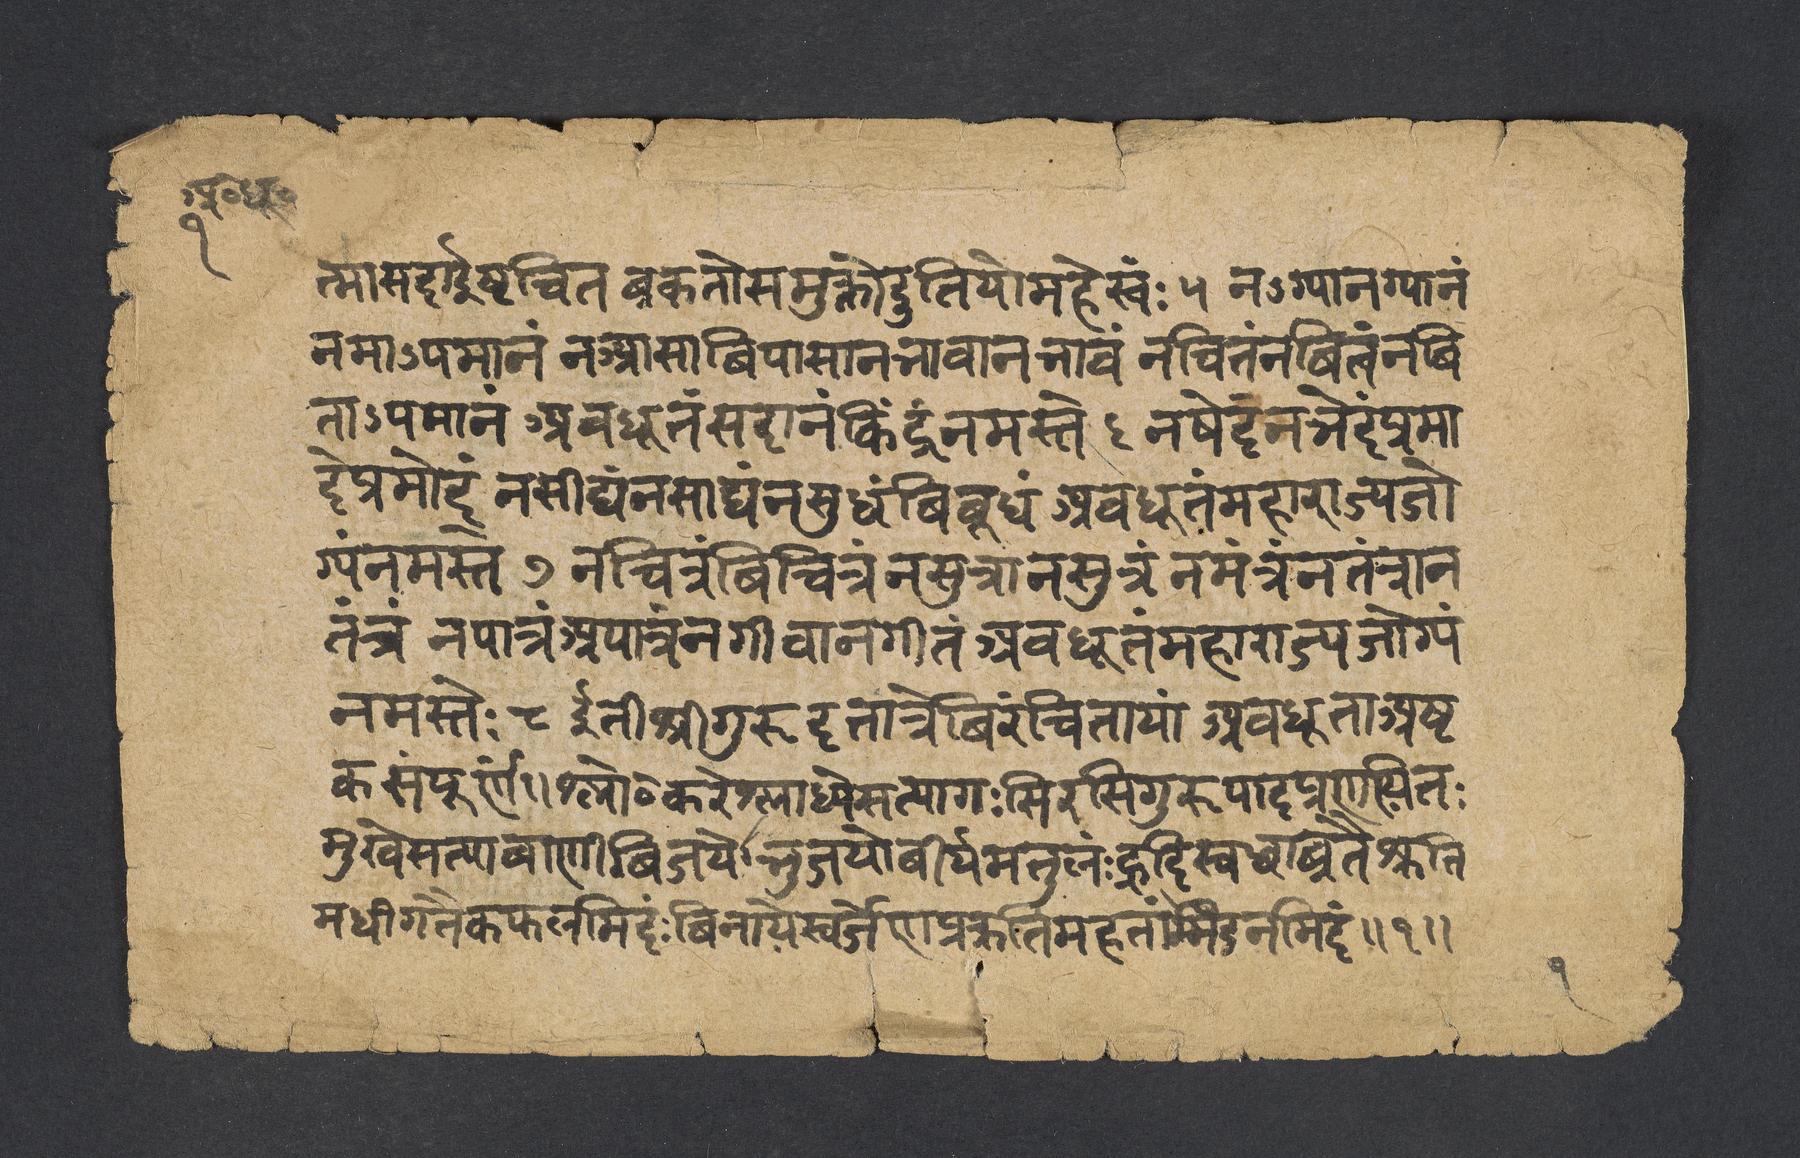 अ॰धु॰
१
त्मासदाईष्टचित बक्रतोसमुक्तोदुतियोमहेस्वंः ५ नऽग्यानग्यानं
नमाऽपमानं नआसाबिपासाननावाननावं नचितंनबितंनबि
ताऽपमानं अवधूतंसदानं नमस्ते ६ नषेदंनभेदंप्रमा
देप्रमोदं नसीद्यंनसाद्यंनसुधंबिबूधं अवधूतंमहाराज्यजो
ग्यंनमस्ते ७ नचित्रंबिचित्रं नसुत्रानसुत्रं नमंत्रंनतंत्रान
तंत्रं नपात्रंअपात्रंनगीवानगीतं अवधूतंमहाराज्यजोग्यं
नमस्तेः ८ ईतीश्रीगुरूदतात्रेबिरंचितायां अवधूताअष्ट
कसंपूर्णं॥श्लो॰करेश्लाघ्येसत्यागःसिरसिगुरूपादप्रणयितः
मुखेसत्याबाणीबिजयेर्भुजयोबीर्यमतुलंःह्रुदि
मधीगतैकफलमिदंःबिनाप्यैस्वर्जेणप्रक्रतिमहतां नमिदं॥१॥
१